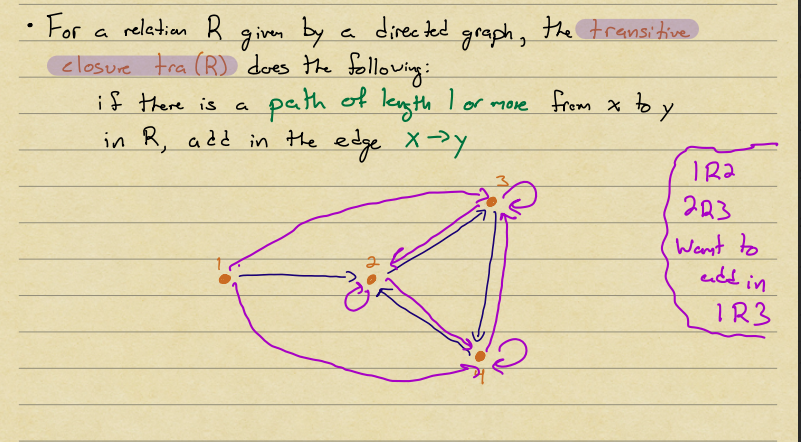 • For a relation R given by a directed graph, the transitive
closure tra(R) does the following:
if there is a path of length 1 or more from x to y
in R, add in the edge x→y
3
1
2
4
1R2
2R3
Want to
add in
1R3